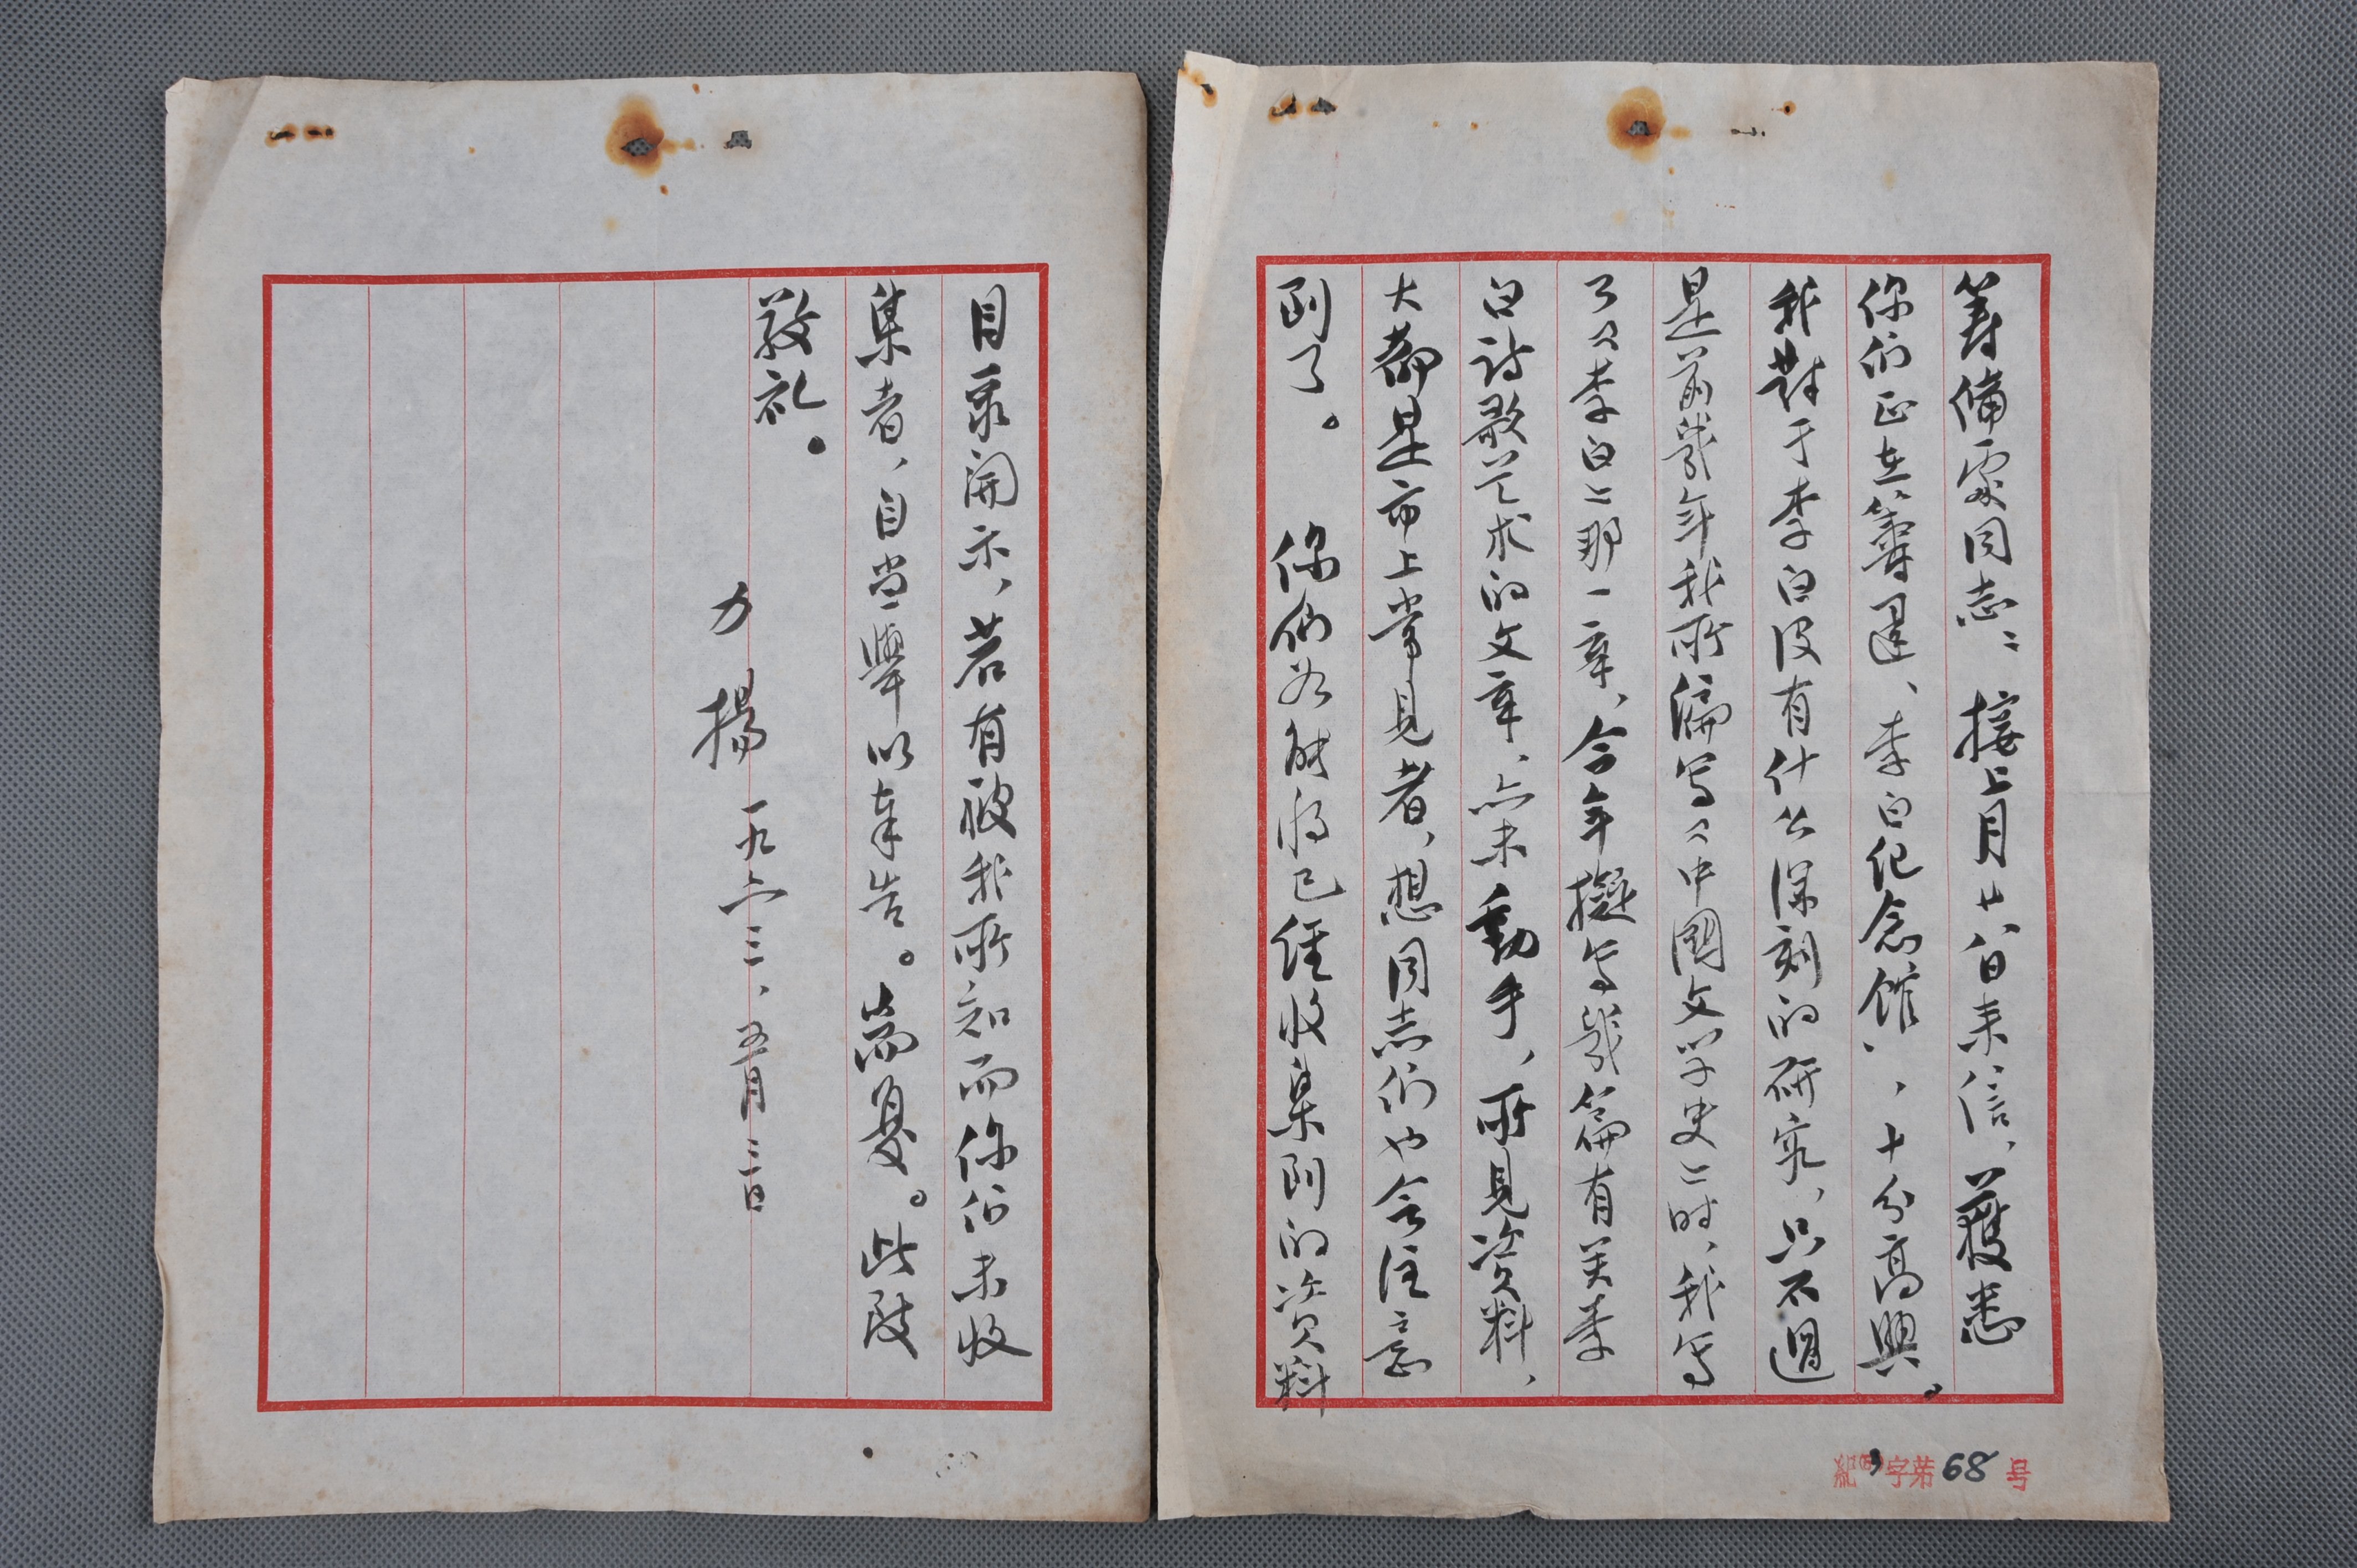 筹備處同志：接上月廿八日来信，獲悉
你们正在籌建、李白纪念馆，十分高興。
我對于李白没有什么深刻的研究，只不過
是前幾年我所編写《中國文学史》时，我写
了《李白》那一章，今年擬写幾篇有关李
白詩歌艺术的文章，亦未動手，所見资料，
大都是市上常見者，想同志们也会注意
到了。你们若能将已經收集到的资料
目录開示，若有被我所知而你们未收
集者，自当舉以奉告。尚复。此致
敬礼。
力揚
一九六三、五月三日
紀字第68号